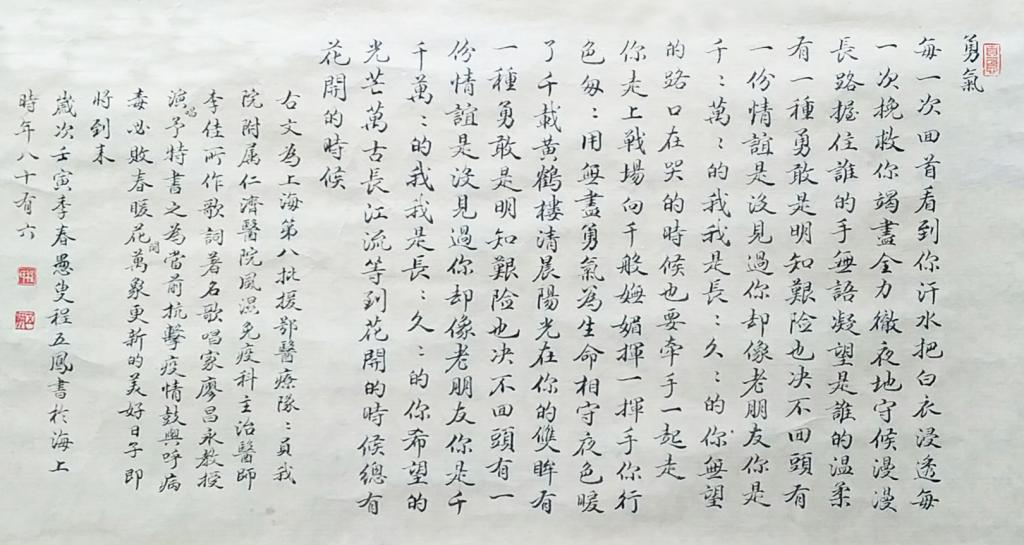 勇氣
每一次回首看到你汗水把白衣浸透每
一次挽救你竭盡全力徹夜地守候漫漫
長路握住誰的手無語凝望是誰的温柔
有一種勇敢是明知艱险也决不回頭有
一份情誼是没見過你却像老朋友你是
千〻萬〻的我我是長〻久〻的你無望
的路口在哭的時候也要牽手一起走
你走上戰場向千般嫵媚揮一揮手你行
色匆〻用無盡勇氣為生命相守夜色暖
了千載黄鶴樓清晨陽光在你的雙眸有
一種勇敢是明知艱险也决不回頭有一
份情誼是没見過你却像老朋友你是千
千萬〻的我我是長〻久〻的你希望的
光芒萬古長江流等到花開的時候總有
花開的時候
右文為上海第八批援鄂醫療隊〻員我
院附属仁濟醫院風濕免疫科主治醫師
李佳所作歌詞著名歌唱家廖昌永教授
演唱予特書之為當前抗擊疫情鼓與呼病
毒必敗春暖花開萬象更新的美好日子即
將到来
歲次壬寅季春愚叟程五鳳書於海上
時年八十有六